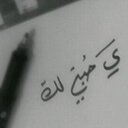 يَ حُبّي لك